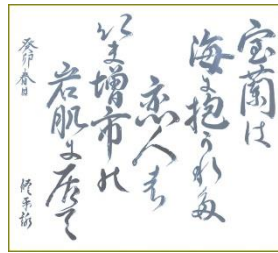 室蘭は
海に抱かれた
恋人よ
いま増市の
岩肌に居て
癸卯春日